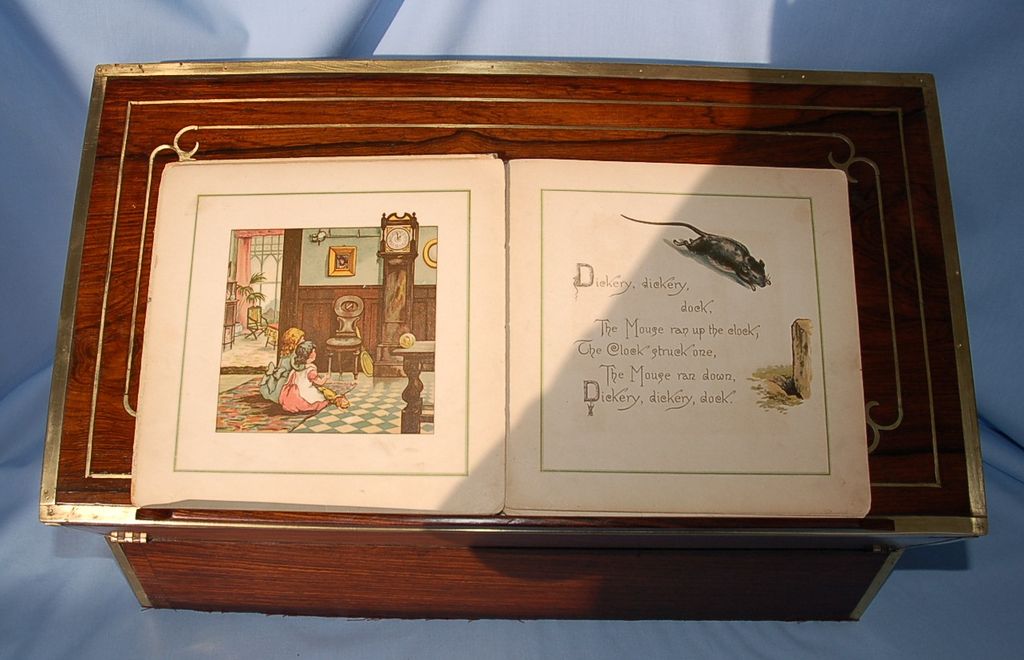 Dickery, dickery,
dock,
The Mouse ran up the clock,
The Clock struck one,
The Mouse ran down,
Dickery, dickery, dock.